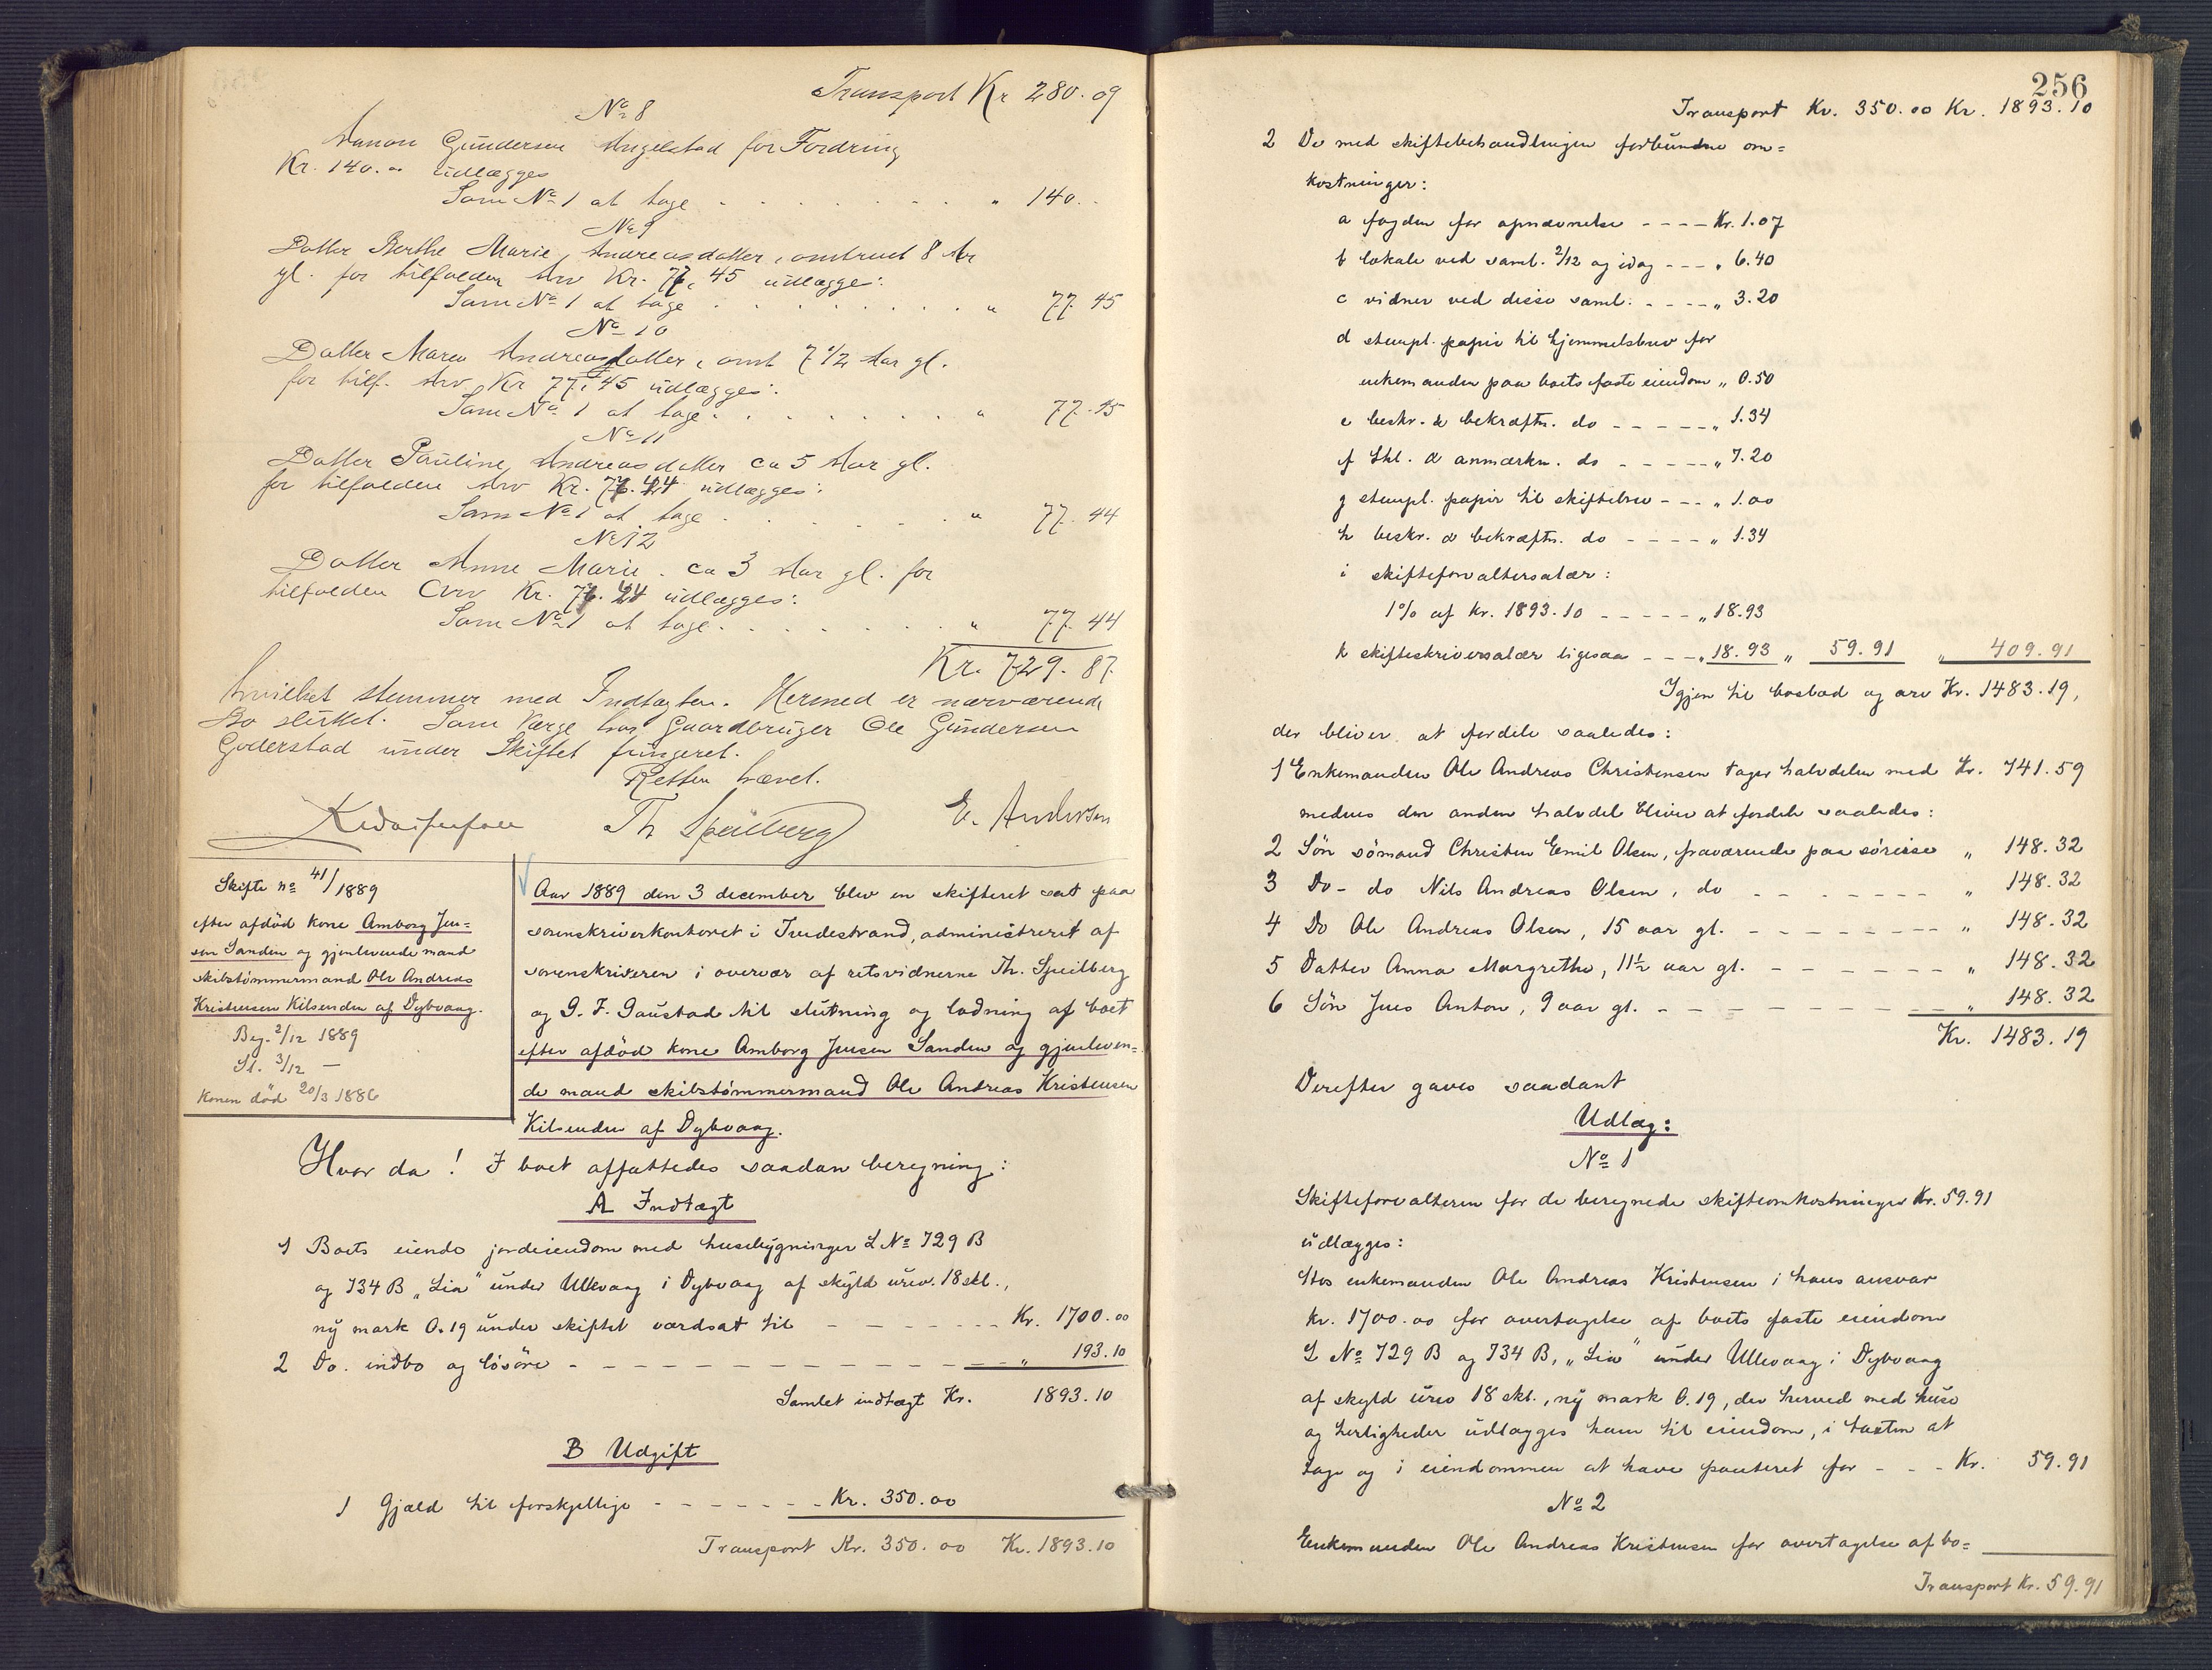 Transport Kr 280.09
No 8
Aanon Gundersen Angelstad for Fordring
Kr. 140.00 udlægges
Som No 1 at tage . . . . . . . . " 140. -
No 9
Datter Berthe Marie Andreasdatter, omtrent 8 Aar
gl. for tilfalden Arv Kr. 77.45 udlægges:
Som No 1 at tage . . . . . . . . " 77.45
No 10
Datter Maren Andreasdatter, omt 7 1/2 Aar gl.
for tilf. Arv Kr 77.45 udlægges:
Som No 1 at tage . . . . . . . . " 77.45
No 11
Datter Pauline Andreasdatter ca 5 Aar gl.
for tilfalden Arv Kr. 77.44 udlægges:
Som No 1 at tage . . . . . . . . " 77.44
No 12
Datter Anne Marie. ca 3 Aar gl. for
tilfalden Arv Kr. 77.44 udlægges:
Som No 1 at tage . . . . . . . . " 77.44
Kr. 729.87.
hvilket stemmer med Indtægten. Hermed er nærværende
Bo sluttet. Som Værge har Gaardbruger Ole Gundersen
Goderstad under Skiftet fungeret.
Retten hævet.
Th Speilberg E. Andersen
Skifte no 41/1889
efter afdöd kone Amborg Jen=
sen Sanden og gjenlevende mand
skibstömmermand Ole Andreas
Kristensen Kilsenden af Dybvaag.
Beg. 2/12 1889
Sl. 3/12 —
Konen död 20/3 1886
Aar 1889 den 3 december blev en skifteret sat paa
sorenskriverkontoret i Tvedestrand, administreret af
sorenskriveren i overvær af retsvidnerne Th. Speilberg
og G. F. Gaustad til slutning og lodning af boet
efter afdöd kone Amborg Jensen Sanden og gjenleven=
de mand skibstömmermand Ole Andreas Kristensen
Kilsenden af Dybvaag.
Hvor da! I boet affattedes saadan beregning:
A Indtægt
1 Boets eiende jordeiendom med husebygninger L No 729 B
og 734 B „Lia" under Ullevaag i Dybvaag af skyld urev. 18 skl.,
ny mark 0.19 under skiftet værdsat til - - - - - - - Kr. 1700.00
2 Do. indbo og lösöre - - - - - - - - - - - - - " 193.10
Samlet indtægt Kr. 1893.10
B Udgift
1 Gjæld til forskjellige - - - - - - - Kr. 350.00
Transport Kr. 350.00 Kr. 1893.10
256
Transport Kr. 350.00 Kr. 1893.10
2 De med skiftebehandlingen forbundne om=
kostninger:
a fogden for opnævnelse - - - - Kr. 1.07
b lokale ved saml. 2/12 og idag - - - " 6.40
c vidner ved disse saml. - - - - " 3.20
d stempl. papir til hjemmelsbrev for
enkemanden paa boets faste eiendom " 0.50
e beskr. & bekræftn. do - - - - - " 1.34
f thl. & anmærkn. do - - - - - " 7.20
g stempl. papir til skiftebrev - - - " 1.00
h beskr. & bekræftn. do - - - - " 1.34
i skifteforvaltersalær:
1% af Kr. 1893.10 - - - - - " 18.93
k skifteskriversalær ligesaa - - - " 18.93 " 59.91 " 409.91
Igjen til boslod og arv Kr. 1483.19,
der bliver at fordele saaledes:
1 Enkemanden Ole Andreas Christensen tager halvdelen med Kr. 741.59
medens den anden halvdel bliver at fordele saaledes:
2 Sön sömand Christen Emil Olsen, fraværende paa söreise " 148.32
3 Do - do Nils Andreas Olsen, do - - - - - - - - " 148.32
4 Do Ole Andreas Olsen, 15 aar gl. - - - - - - - - - " 148.32
5 Datter Anna Margrethe, 11 1/2 aar gl. - - - - - - - - " 148.32
6 Sön Jens Anton, 9 aar gl. - - - - - - - - - - - " 148.32
Kr. 1483.19
Derefter gaves saadant
Udlæg:
No 1
Skifteforvalteren for de beregnede skifteomkostninger Kr. 59.91
udlægges:
Hos enkemanden Ole Andreas Kristensen i hans ansvar
Kr. 1700.00 for overtagelse af boets faste eiendom
L No 729 B og 734 B, „Lia" under Ullevaag i Dybvaag
af skyld urev 18 skl., ny mark 0.19, der herved med huse
og herligheder udlægges ham til eiendom, i taxten at
tage og i eiendommen at have panteret for - - - Kr. 59.91
No 2
Enkemanden Ole Andreas Kristensen for overtagelse af bo=
Transport Kr. 59.91